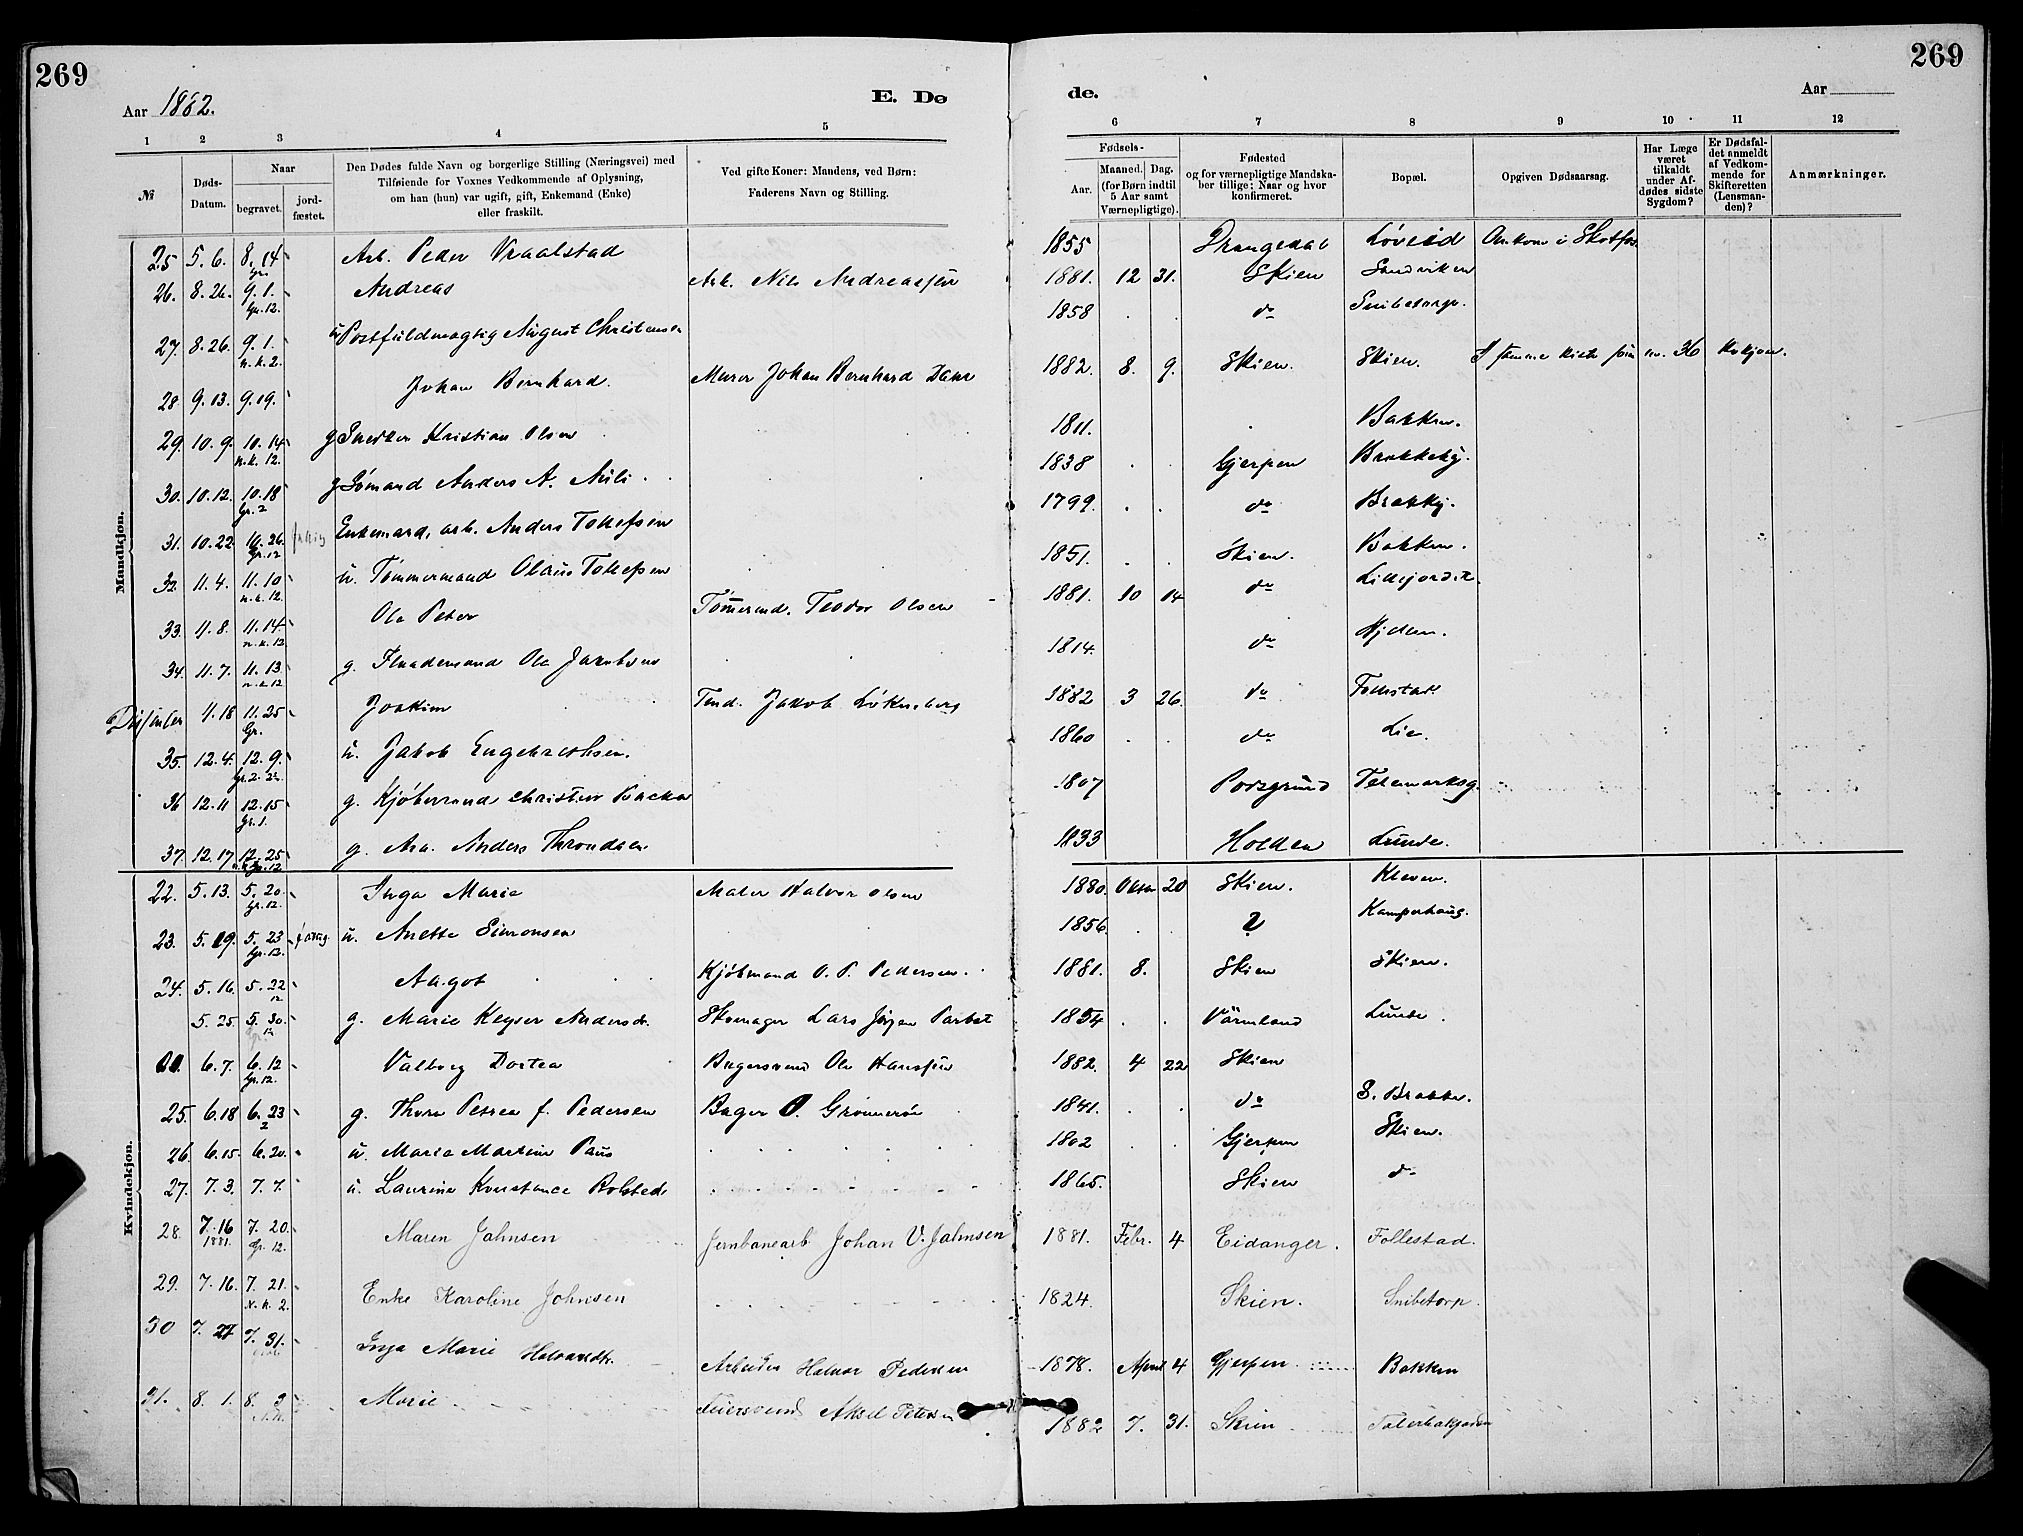 269
269
Aar 1882.
E. Dø
de.
Aar
1 2 3 4 5
6 7 8 9 10 11 12
№
Døds-Datum.
Naar
begravet.
jord-fæstet.
Den Dødes fulde Navn og borgerlige Stilling (Næringsvei) med
Tilføiende for Voxnes Vedkommende af Oplysning,
om han (hun) var ugift, gift, Enkemand (Enke)
eller fraskilt.
Ved gifte Koner: Mandens, ved Børn:
Faderens Navn og Stilling.
Fødsels-
Aar.
Maaned. Dag.
(for Børn indtil
5 Aar samt
Værnepligtige).
Fødested
og for værnepligtige Mandska-
ber tillige: Naar og hvor
konfirmeret.
Bopæl.
Opgiven Dødsaarsag.
Har Læge
været
tilkaldt
under Af-
dødes sidste
Sygdom?
Er Dødsfal-
det anmeldt
af Vedkom-
mende for
Skifteretten
(Lensman-
den)?
Anmærkninger.
Mandkjøn.
25 5.6. 8.14 Gr. Arb. Peder Vraalstad 1855 Drangedal Løveid Omkom i Skotfos
26. 8.26. 9.1. Gr. 12. Andreas Arb. Nils Andreassen 1881. 12 31. Skien Sandviken
27. 8.26. 9.1. n.k.2. u Postfuldmægtig August Christensen 1858 do Snibetorp.
28 9.13. 9.19. Johan Bernhard. Murer Johan Bernhard 1882. 8. 9. Skien. Skien. I samme Kiste som no. 36 Kvkjøn.
29. 10.9. 10.14 n.k.12. g Snedker Kristian Olsen 1811. Bakken.
30. 10.12. 10.18 Gr. 2 g Sømand Anders A. 1838 Gjerpen Brekkeby.
31. 10.22. 10.26. Gr. 12 Enkemand, arb. Anders Tollefsen 1799. do Brekkby.
32. 11.4. 11.10 n.k.12. u. Tømmermand Olaus Tollefsen 1851. Skien. Bakken.
33. 11.8. 11.14 n.k.12 Ole Peter Tømmerm. Teodor Olsen 1881. 10 14 do
34. 11.7. 11.13 n.k.12 g. Ole Jacobsen 1814. do Hjellen.
11.18 11.25 Gr. Joakim Jakob 1882 3 26. do Follestad
35. 12.4. 12.9. Gr. 2. u. Jakob Engebrethsen. 1860 do Lie.
36 12.11 12.15 Gr. 1. g. Kjøbmand Christian 1807 Porsgrund Telemarksg.
37. 12.17 12.25 Gr. 12 g. Arb. Anders Throndsen 1833 Holden Lunde.
Kvindekjøn.
22. 5.13. 5.20. Gr. 12. Inga Marie Maler Halvor Olsen 1880. Oktbr 20 Skien. Kleven.
23. 5.19. 5.23 Gr. 12. u. Anette Simonsen 1856. ? Kamperhaug.
24. 5.16. 5.22 12 Aagot Kjøbmand O. P. Pedersen. 1881. 8. Skien Skien.
5.25. 5.30. 12 g. Marie Keyser Andersdr. Skomager Lars Jørgen 1854 Värmland Lunde.
6.7. 6.12 Gr. 12. Valborg Dortea Bagersvend Ole Hanssen 1882. 4 22 Skien
25. 6.18 6.23 2 g. Thora Petrea f. Pedersen Bager O. Grønnerøe 1841. do S. Brekke.
26. 6.15. 6.20. u. Maria Martine Paus 1802 Gjerpen Skien.
27. 7.3. 7.7. u. Laurine Konstance Rolsted 1865. Skien do
28. 7.16 1881. 7.20. Gr. 12. Maren Jahnsen Jernbanearb Johan V. Jahnsen 1881. Febr. 4 Eidanger. Follestad.
29. 7.16. 7.21. N.k. 2. Enke Karoline Johnsen 1824. Skien. Snibetorp.
30 7.27 7.31. Inga Marie Halvorsdtr. Arbeider Halvor Pedersen 1878. April 4 Gjerpen Bakken
31. 8.1. 8.3 N.k. Marie Feiersvend Aksel Petersen 1882 7. 31. Skien